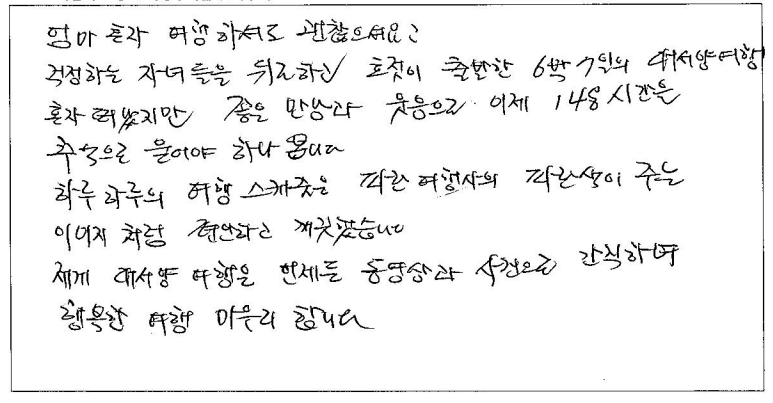 엄마 혼자 여행하셔도 괜찮으셔요?
걱정하는 자녀들을 뒤로하고 호젓이 출발한 6박 7일의 대서양여행
혼자 떠났지만 좋은 만남과 웃음으로 이제 148시간을
추억으로 묻어야 하나 봅니다
하루하루의 여행 스케줄은 파란여행사의 파란색이 주는
이미지 처럼 편안하고 깨끗했습니다
제게 대서양 여행을 언제든 동영상과 사진으로 간직하며
행복한 여행 마무리 합니다